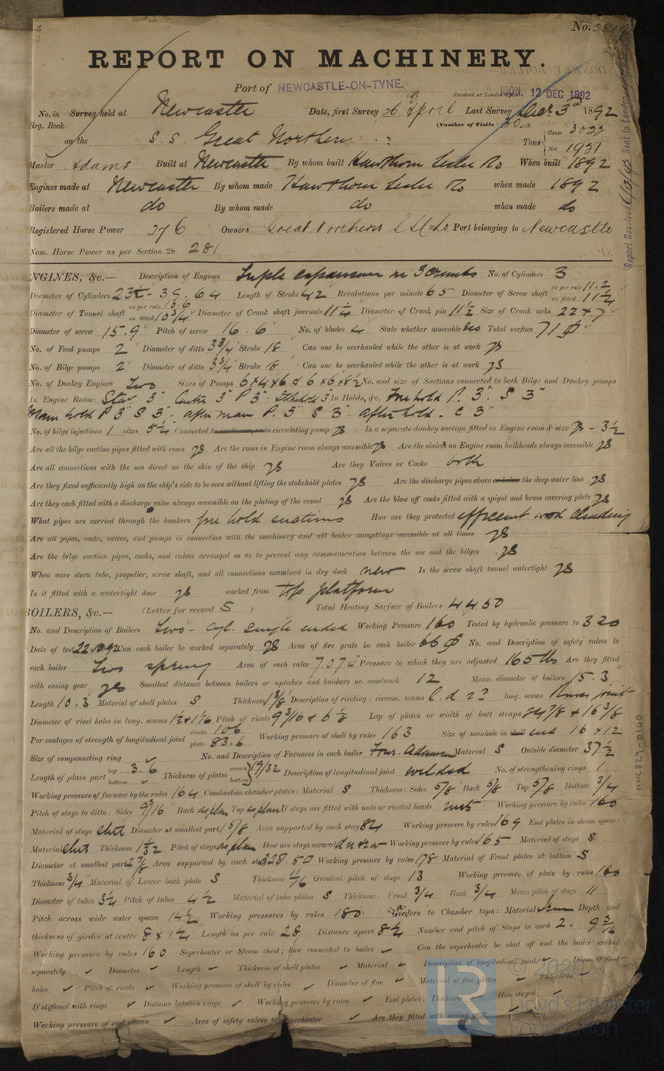 No. 
REPORT ON MACHINERY.
Port of NEWCASTLE-ON-TYNE.
Received at London MON. 12 DEC 1892
No. in Survey held at Newcastle Date, first Survey 26th April Last Survey Dec 3rd 1892
Reg. Book. (Number of Visits 30)
on the S.S. Great Northern Tons Gross 3023 Net 1951
Master Adams Built at Newcastle By whom built Hawthorn Leslie & Co When built 1892
Engines made at Newcastle By whom made Hawthorn Leslie & Co when made 1892
Boilers made at do By whom made do when made do
Registered Horse Power 276 Owners Great Northern S.S. Co Ld Port belonging to Newcastle
Nom. Horse Power as per Section 28 281
ENGINES, &c.— Description of Engines Triple expansion on 3 cranks No. of Cylinders 3
Diameter of Cylinders 23½. 39. 64 Length of Stroke 42 Revolutions per minute 65 Diameter of Screw shaft as per rule 11.2 as fitted 11½
Diameter of Tunnel shaft as per rule as fitted 10¾ Diameter of Crank shaft journals 11½ Diameter of Crank pin 11½ Size of Crank webs 22 × 7
Diameter of screw 15.9 Pitch of screw 16.6 No. of blades 4 State whether moveable no Total surface 71
No. of Feed pumps 2 Diameter of ditto 3¾ Stroke 18 Can one be overhauled while the other is at work yes
No. of Bilge pumps 2 Diameter of ditto 3¾ Stroke 18 Can one be overhauled while the other is at work yes
No. of Donkey Engines Two Sizes of Pumps 6×4×6 & 6×6×8½ No. and size of Suctions connected to both Bilge and Donkey pumps
In Engine Room Star 3" Centre 3" P 3" In Holds, &c. Fore hold P. 3". S 3"
Main hold P 3" S 3". after main P. 3" S 3" after hold. C 3"
No. of bilge injections 1 sizes 5½ Connected to circulating pump yes Is a separate donkey suction fitted in Engine room & size yes - 3½
Are all the bilge suction pipes fitted with roses yes Are the roses in Engine room always accessible yes Are the sluices on Engine room bulkheads always accessible yes
Are all connections with the sea direct on the skin of the ship yes Are they Valves or Cocks both
Are they fixed sufficiently high on the ship's side to be seen without lifting the stokehold plates yes Are the discharge pipes above or below the deep water line yes
Are they each fitted with a discharge valve always accessible on the plating of the vessel yes Are the blow off cocks fitted with a spigot and brass covering plate yes
What pipes are carried through the bunkers fore hold suctions How are they protected efficient wood cleading
Are all pipes, cocks, valves, and pumps in connection with the machinery and all boiler mountings accessible at all times yes
Are the bilge suction pipes, cocks, and valves arranged so as to prevent any communication between the sea and the bilges yes
When were stern tube, propeller, screw shaft, and all connections examined in dry dock new Is the screw shaft tunnel watertight yes
Is it fitted with a watertight door yes worked from top platform
BOILERS, &c.— (Letter for record S) Total Heating Surface of Boilers 4450
No. and Description of Boilers Two - Cyl. Single ended Working Pressure 160 Tested by hydraulic pressure to 320
Date of test 22 Can each boiler be worked separately yes Area of fire grate in each boiler 66 No. and Description of safety valves to
each boiler Two spring Area of each valve 7.07 Pressure to which they are adjusted 165 lbs Are they fitted
with easing gear yes Smallest distance between boilers or uptakes and bunkers or woodwork 12 Mean diameter of boilers 15.3
Length 10.3 Material of shell plates S Thickness Description of riveting: circum. seams long. seams
Diameter of rivet holes in long. seams Pitch of rivets Lap of plates or width of butt straps
Per centages of strength of longitudinal joint rivets 106 plate 83.6 Working pressure of shell by rules 163 Size of manhole in end 16 × 12
Size of compensating ring No. and Description of Furnaces in each boiler Four. Adamson Material S Outside diameter 37½
Length of plain part top 3.6 bottom Thickness of plates crown bottom 19/32 Description of longitudinal joint welded No. of strengthening rings 1
Working pressure of furnace by the rules 164 Combustion chamber plates: Material S Thickness: Sides 5/8 Back 5/8 Top 5/8 Bottom 3/4
Pitch of stays to ditto: Sides Back as plan Top as plan If stays are fitted with nuts or riveted heads nuts Working pressure by rules 160
Material of stays Diameter at smallest part 1 5/8 Area supported by each stay 84 Working pressure by rules 169 End plates in steam space:
Material Thickness Pitch of stays as plan How are stays secured Working pressure by rules 165 Material of stays S
Diameter at smallest part Area supported by each stay 328.50 Working pressure by rules 178 Material of Front plates at bottom S
Thickness 3/4 Material of Lower back plate S Thickness Greatest pitch of stays 13 Working pressure of plate by rules 160
Diameter of tubes 3¼ Pitch of tubes 4½ Material of tube plates S Thickness: Front 3/4 Back 3/4 Mean pitch of stays 11
Pitch across wide water spaces 14½ Working pressures by rules 180 Girders to Chamber tops: Material Iron Depth and
thickness of girder at centre 8 × 1½ Length as per rule 28 Distance apart 8½ Number and pitch of Stays in each 2.
Working pressure by rules 160 Superheater or Steam chest; how connected to boiler Can the superheater be shut off and the boiler worked
separately Diameter Length Thickness of shell plates Material Description of longitudinal joint
holes Pitch of rivets Working pressure of shell by rules Diameter of flue Material of flue plates
If stiffened with rings Distance between rings Working pressure by rules End plates: Thickness How stayed
Working pressure of end plates Area of safety valves to superheater Are they fitted with easing gear
LR
Lloyd's Register
Foundation